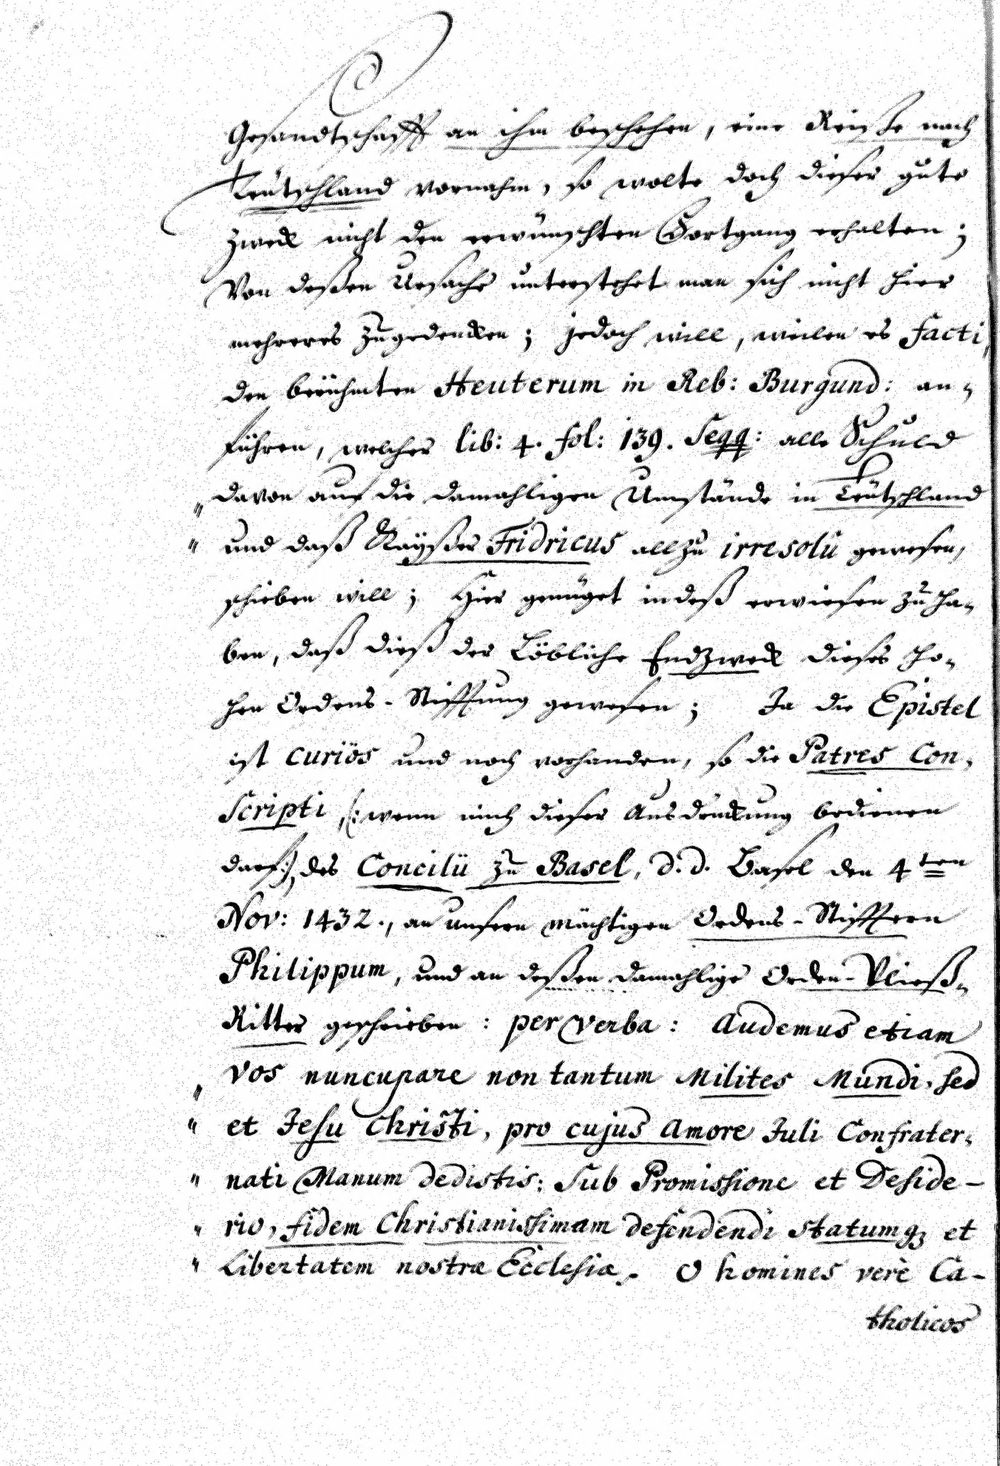 Gesandtschafft an ihm beschehen, eine Reiße nach
Teütschland vornahm, so wolte doch dieser gute
Zweck nicht den erwünschten Fortgang erhalten;
Von deßen Ursache unterstehet man sich nicht hier
mehreres zugedencken; jedoch will, weilen es facti,
den berühmten Heuterum in Reb: Burgund: an-
führen, welcher lib: 4. fol: 139. Seqq: alle Schuld
" davon auf die damahligen Umstände in Teütschland
" und daß Kayßer Fridricus allzu irresolu gewesen,
schieben will; Hier genüget indeß erwiesen zu ha-
ben, daß dieß der Löbliche Endzweck dieses ho-
hen Ordens-Stifftung gewesen; Ja die Epistel
ist curiös und noch vorhanden, so die Patres Con-
Scripti /: wenn mich dieser Ausdruckung bedienen
darf :/, des Concilii zu Basel, d. d. Basel den 4ten
Nov: 1432., an unsern mächtigen Ordens-Stifftern
Philippum, und an deßen damahlige Orden-Vließ-
Ritter geschrieben: per Verba: Audemus etiam
" vos nuncupare non tantum Milites Mundi, sed
" et Jesu Christi, pro cujus Amore Juli Confrater-
" nati Manum dedistis: Sub Promissione et Deside-
" rio, fidem Christianissimam defendendi statumq; et
" Libertatem nostræ Ecclesiæ. O homines verè Ca-
tholicos